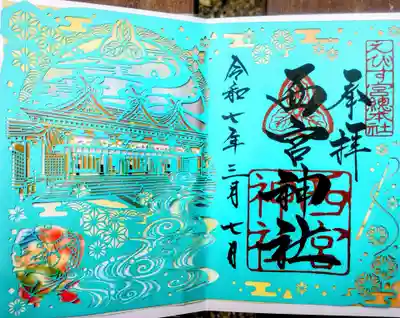 えびす宮総本社
奉拝
西宮神社
西宮
神社
令和七年三月七日